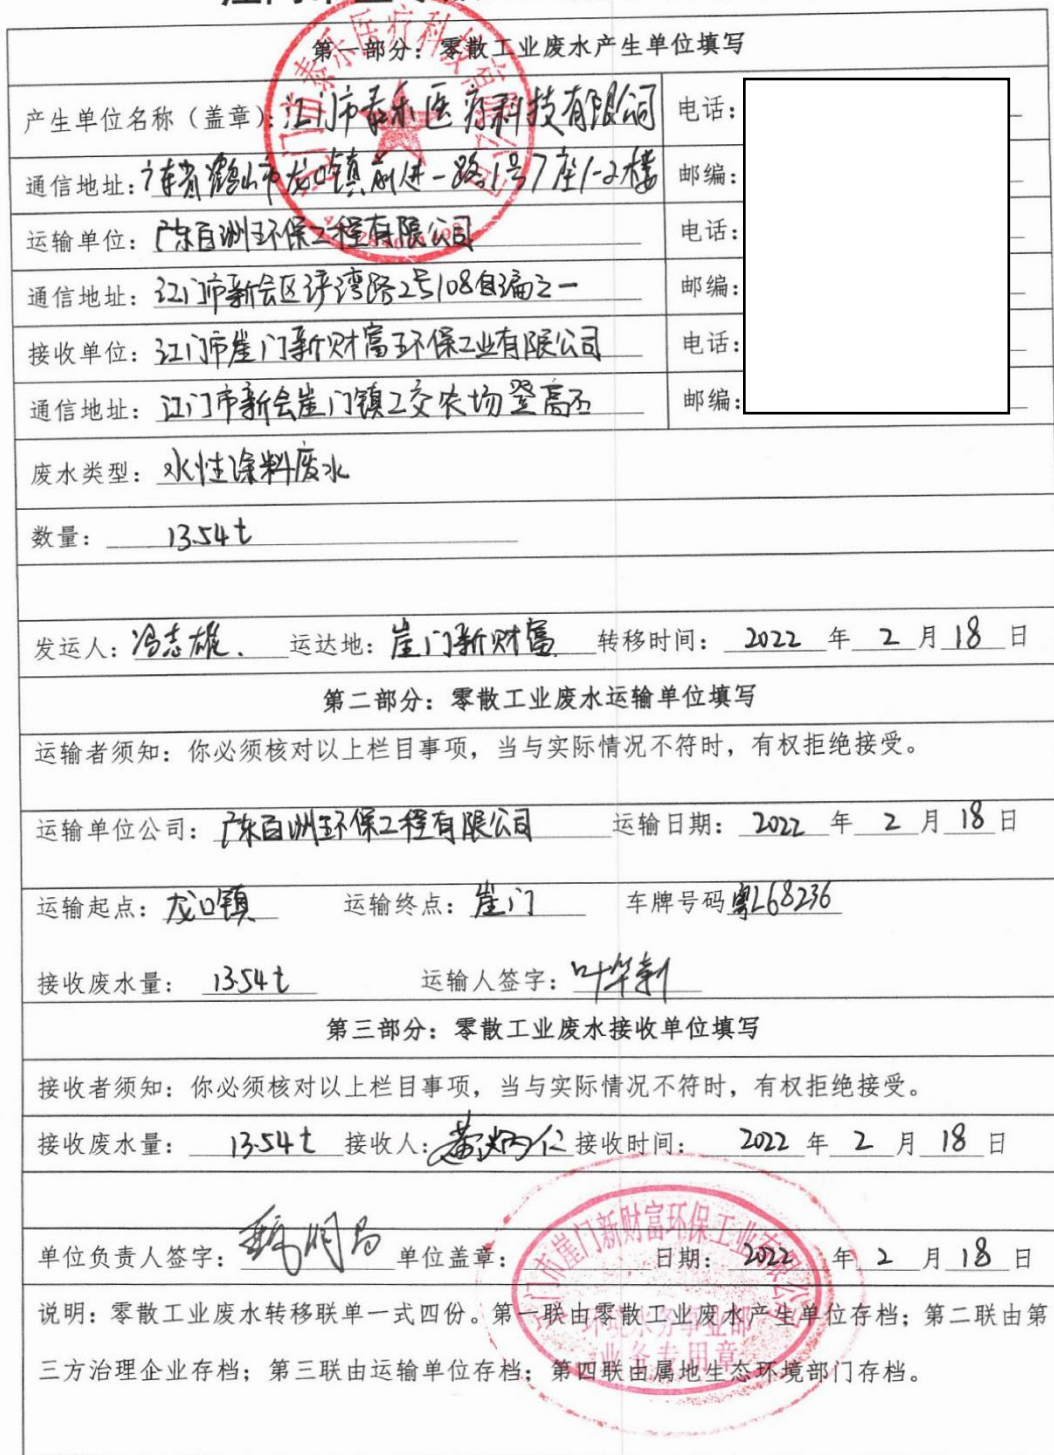 第一部分：零散工业废水产生单位填写
产生单位名称（盖章）：江门市泰乐医疗科技有限公司 电话：
通信地址：广东省鹤山市龙口镇前进一路1号7座1-2楼 邮编：
运输单位：广东百洲环保工程有限公司 电话：
通信地址：江门市新会区 湾路2号108自编之一 邮编：
接收单位：江门市崖门新财富环保工业有限公司 电话：
通信地址：江门市新会崖门镇工交农场登高石 邮编：
废水类型：水性涂料废水
数量：13.54t
发运人：冯志雄. 运达地：崖门新财富 转移时间：2022年2月18日
第二部分：零散工业废水运输单位填写
运输者须知：你必须核对以上栏目事项，当与实际情况不符时，有权拒绝接受。
运输单位公司：广东百洲环保工程有限公司 运输日期：2022年2月18日
运输起点：龙口镇 运输终点：崖门 车牌号码粤L68236
接收废水量：13.54t 运输人签字：叶华新
第三部分：零散工业废水接收单位填写
接收者须知：你必须核对以上栏目事项，当与实际情况不符时，有权拒绝接受。
接收废水量：13.54t 接收人：黄炳仁 接收时间：2022年2月18日
单位负责人签字： 单位盖章： 日期：2022年2月18日
江门市崖门新财富环保工业有限公司
环境水务事业部
业务专用章
说明：零散工业废水转移联单一式四份。第一联由零散工业废水产生单位存档；第二联由第
三方治理企业存档；第三联由运输单位存档；第四联由属地生态环境部门存档。
江门市泰乐医疗科技有限公司